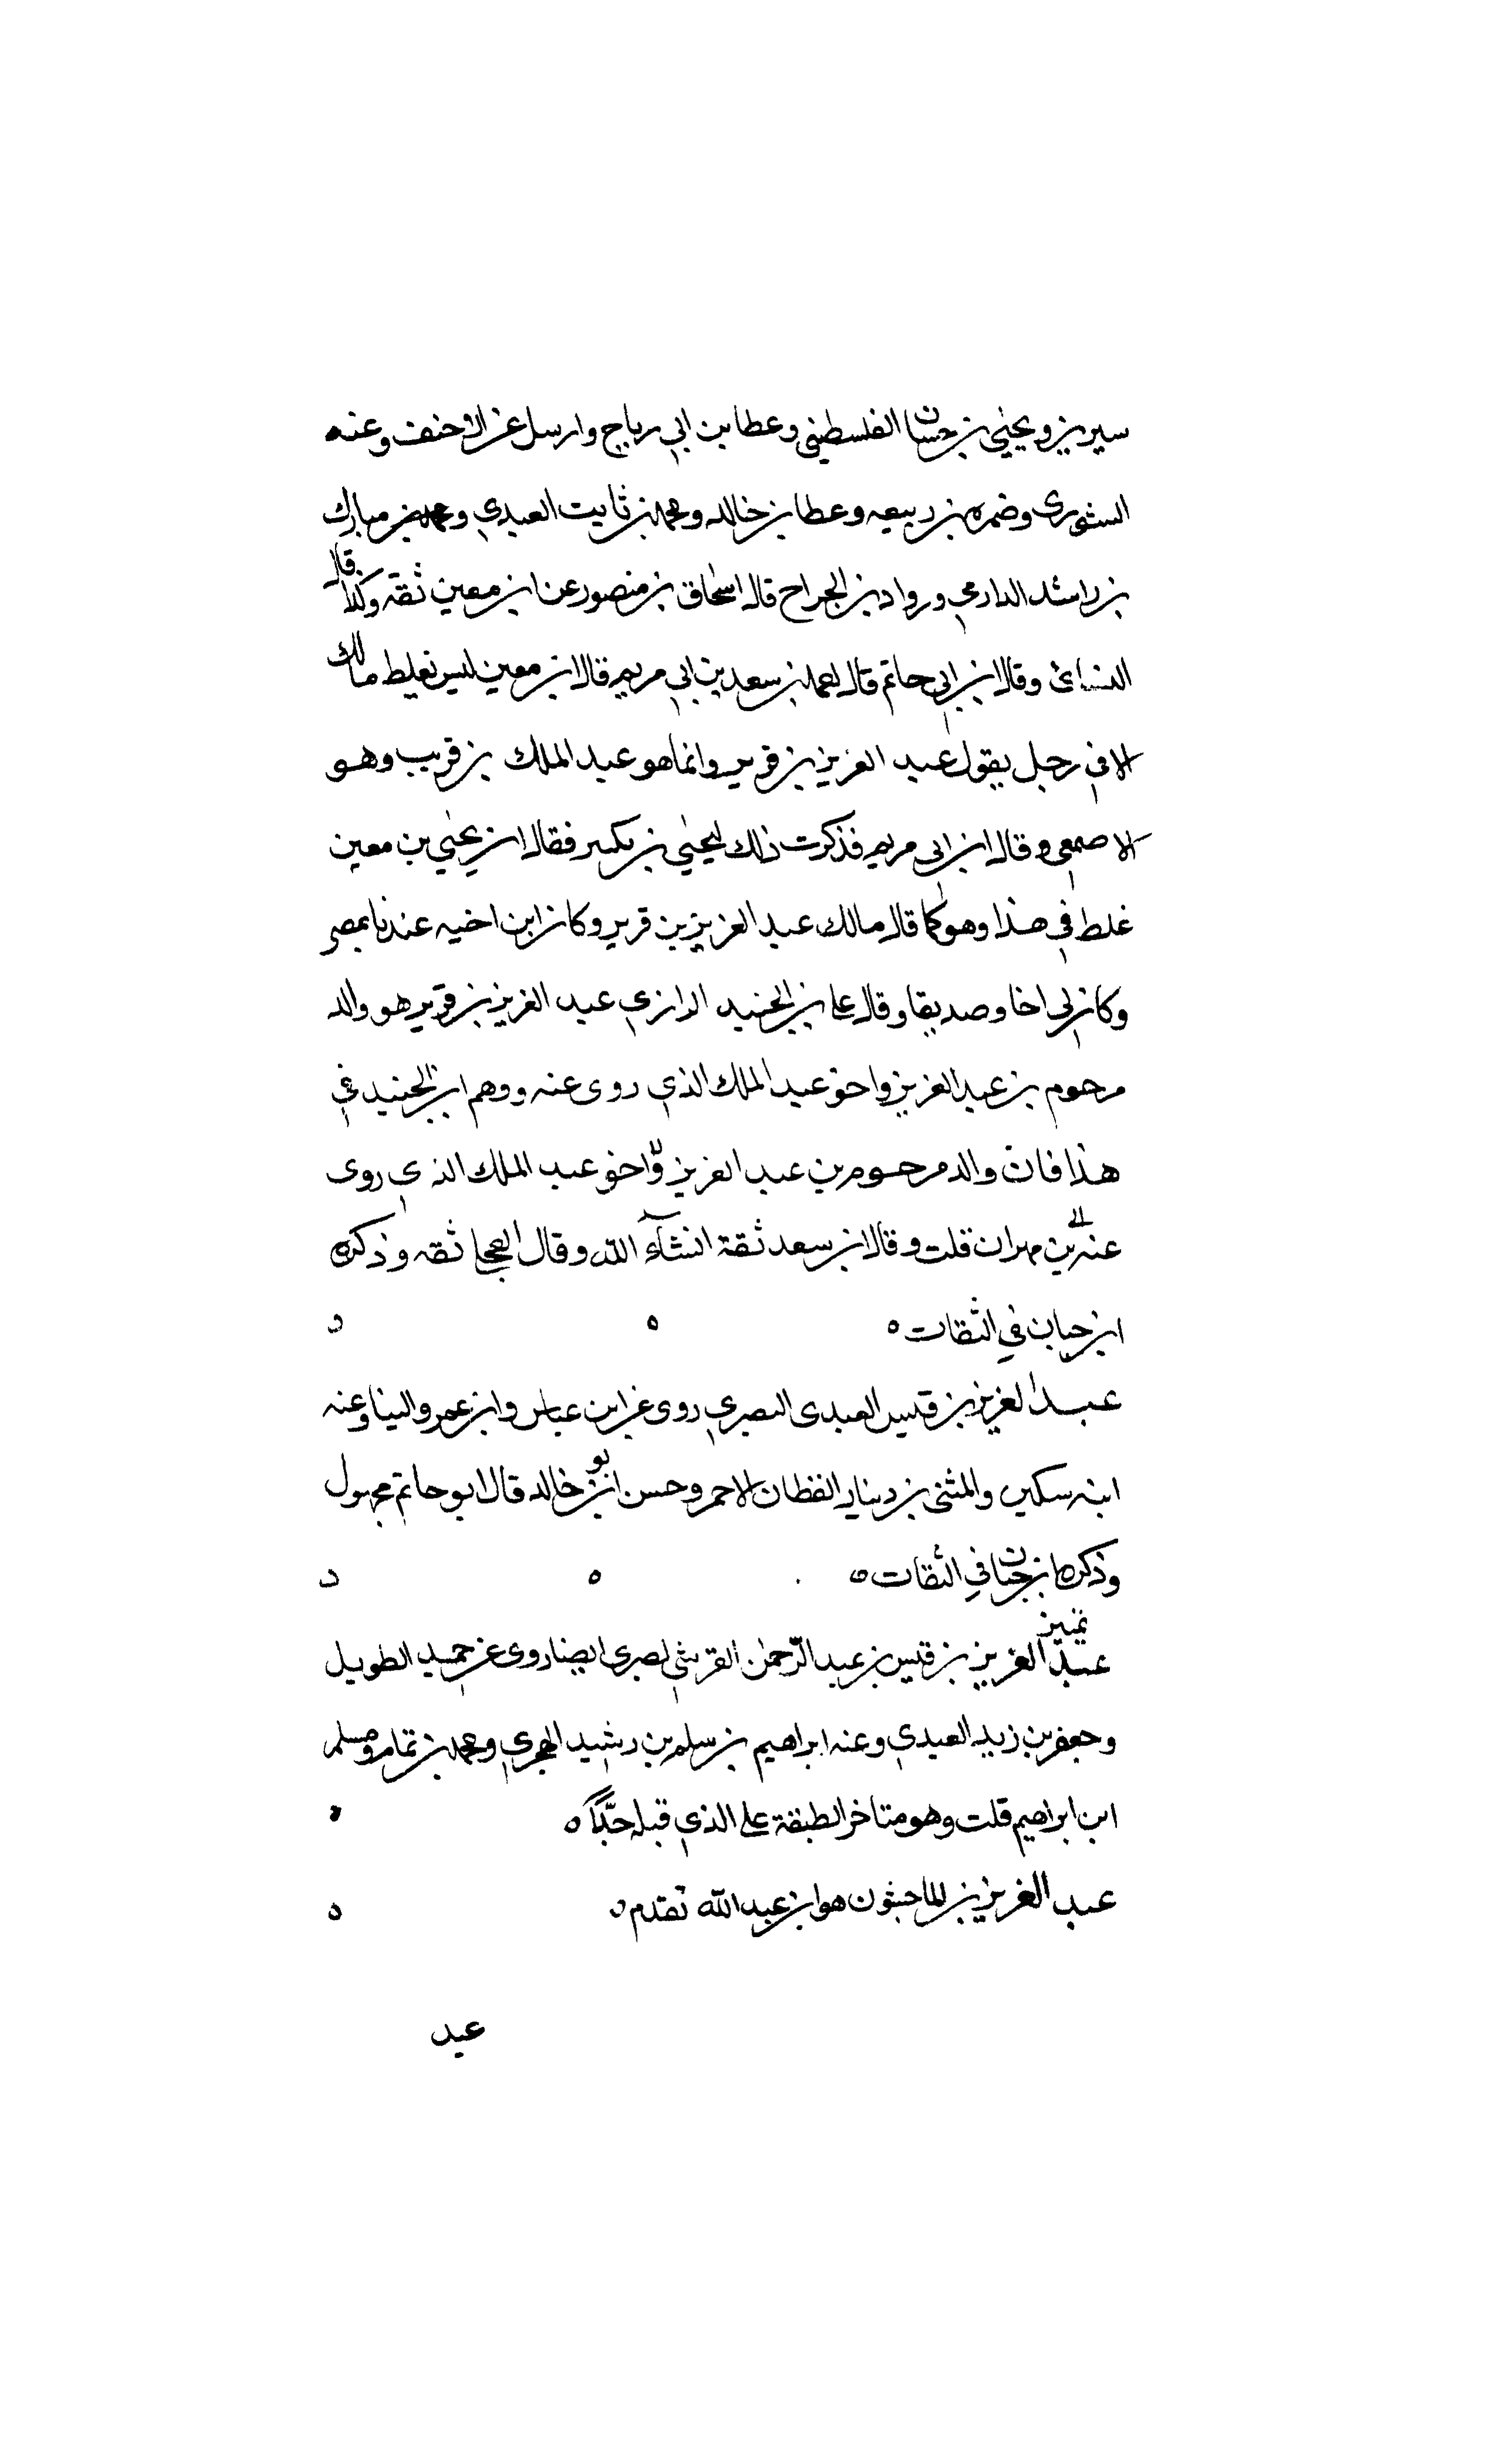 سيرين ويحيى بن حسان الفلسطيني وعطا بن ابي رباح وارسل عن الاحنف وعنه
الثوري وضمره بن ربيعه وعطا بن خالد ومحمد بن ثابت العبدي ومحمد بن مبارك
بن راشد الدارمي ورواد بن الجراح قال اسحاق بن منصور عن ابن معين ثقة وكذا قال
النسائي وقال ابن ابي حاتم قال احمد بن سعد بن ابي مريم قال ابن معين ليس نغلط مالك
الا في رجل يقول عبد العزيز بن قرير وانما هو عبد الملك بن قريب وهو
الاصمعي وقال ابن ابي مريم فذكرت ذلك ليحيى بن بكير فقال ان يحيى بن معين
غلط في هذا وهو كما قال مالك عبد العزيز بن قرير وكان ابن اخيه عندنا بمصر
وكان لي اخا وصديقا وقال علي بن الجنيد الرازي عبد العزيز بن قرير هو والد
مرحوم بن عبد العزيز واخو عبد الملك الذي روى عنه ووهم ابن الجنيد في
هذا فان والد مرحوم بن عبد العزيز واخو عبد الملك الذي روى
عنه بن مهران قلت وقال ابن سعد ثقة انشآء الله وقال العجلي ثقه وذكره
ابن حبان في الثقات ه
عبد العزيز بن قيس العبدى البصري روى عن ابن عباس وابن عمر والينا وعنه
ابنه سكين والمثنى بن دينار القطان الاحمر وحسن ابو خالد قال ابو حاتم مجهول
وذكره ابن حبان في الثقات ه
تمييز
عبد العزيز بن قيس بن عبد الرحمن القرشي بصرى ايضا روى عن حميد الطويل
وجعفر بن زيد العبدي وعنه ابراهيم بن سلم بن رشيد الهجري ومحمد بن تمام ومسلم
ابن ابراهيم قلت وهو متاخر الطبقة على الذي قبله جدًّا ه
عبد العزيز بن الماجشون هو ابن عبد الله تقدم ه
عبد